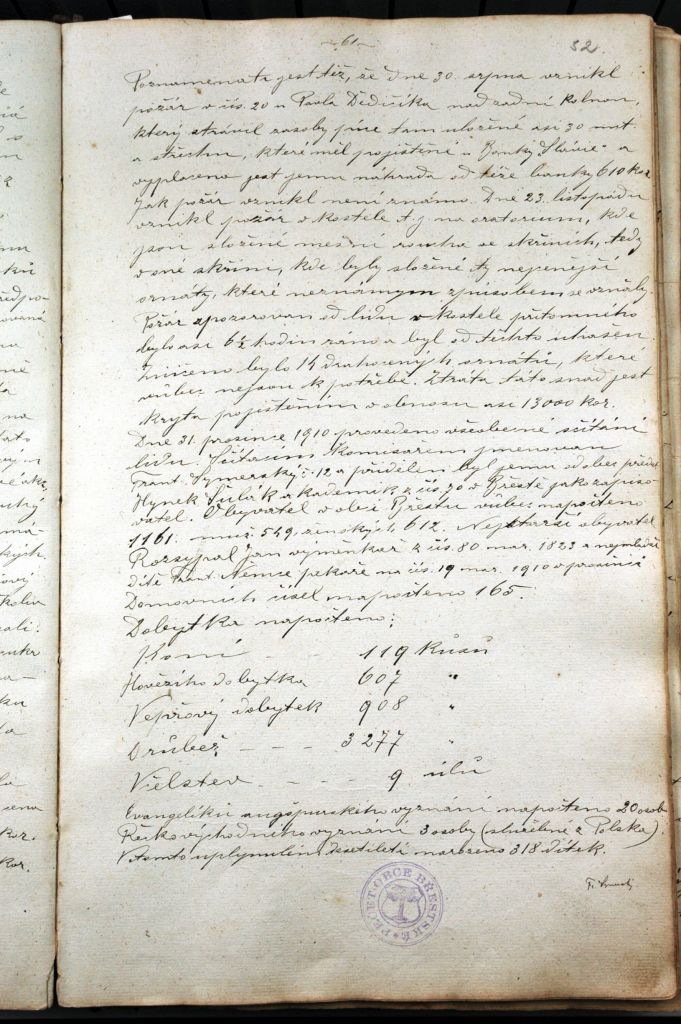 - 61 -
52.
Poznamenati jest též, že dne 30. srpna vznikl
požár v čís. 20 u Pavla Dědičíka nad zadní kolnou,
který strávil zásoby píce tam uložené asi 30 met.
a střechu, které měl pojištěné u Banky "Slávie" a
vyplacena jest jemu náhrada od téže banky 610 kor.
Jak požár vznikl není známo. Dne 23. listopadu
vznikl požár v kostele t. j. na oratorium, kde
jsou složené mešní roucha ve skříních, tedy
v oné skříni, kde byly složené ty nejpěnější
ornáty, které neznámým způsobem se vzňaly.
Požár zpozorován od lidu v kostele přítomného
bylo asi 6½ hodin ráno a byl od těchto uhašen.
Zničeno bylo 14 drahocených ornátů, které
vůbec nejsou k potřebě. Ztráta tato snad jest
kryta pojištěním v obnosu asi 13000 kor.
Dne 31. prosince 1910 provedeno všeobecné sčítání
lidu. Sčítacím komisařem jmenován
Frant. Symerský č. 12 a přidělen byl jemu od obec. předst.
Hynek akademik z čís. 70 v Břestě jako zapiso-
vatel. Obyvatel v obci Břestu vůbec napočteno
1161. muž. 549, ženských 612. Nejstarší obyvatel
Rozsypal Jan výměnkář z čís. 80 nar. 1823 a nejmladší
dítě Frant. Němce pekaře na čís. 19 nar. 1910 v prosinci
Domovních čísel napočteno 165.
Dobytka napočteno:
Koní - 119 kusů
Hovězího dobytka 607 "
Vepřový dobytek 908 "
Drůbež - - - 3277 "
Včelstev - - - 9 úlů
Evangelíků augšpurského vyznání napočteno 20 osob
Řeckovýchodního vyznání 3 osoby (služebné z Polska).
V tomto uplynulém desetiletí narozeno 318 dítek.
PEČEŤ OBCE BŘESTSKÉ